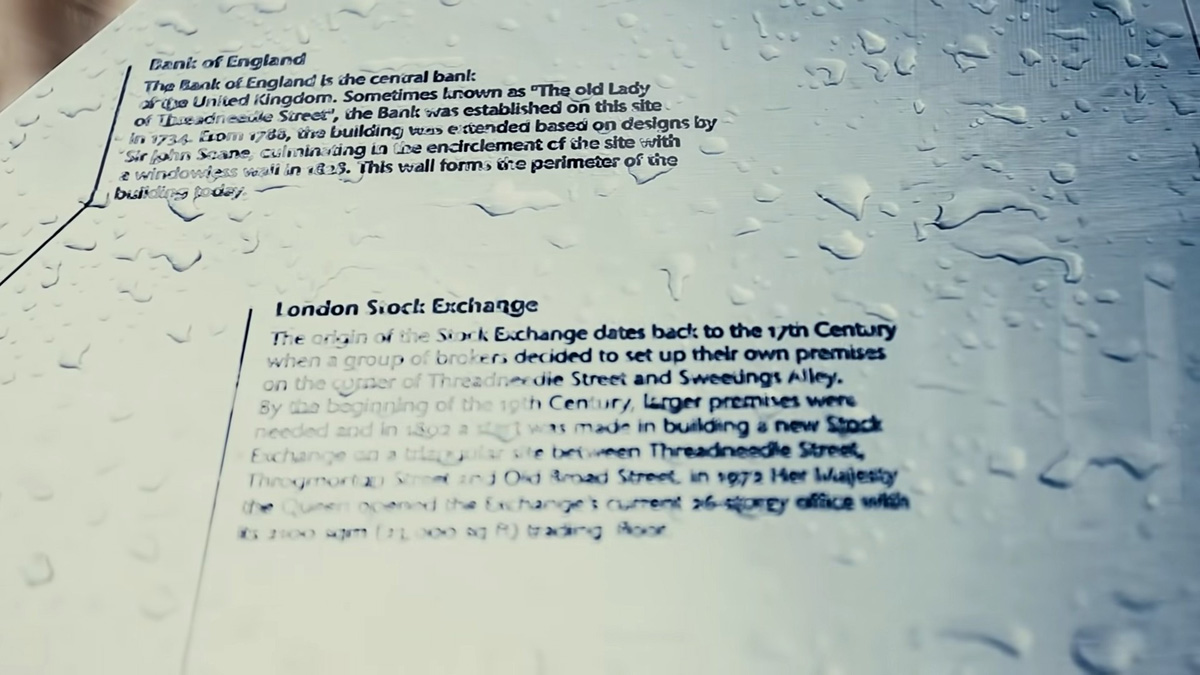 Bank of England
The Bank of England is the central bank
of the United Kingdom. Sometimes known as "The old Lady
of Threadneedle Street", the Bank was established on this site
in 1734. From 1788, the building was extended based on designs by
Sir John Soane, culminating in the encirclement of the site with
a windowless wall in 1828. This wall forms the perimeter of the
building today.
London Stock Exchange
The origin of the Stock Exchange dates back to the 17th Century
when a group of brokers decided to set up their own premises
on the corner of Threadneedle Street and Sweetings Alley.
By the beginning of the 19th Century, larger premises were
needed and in 1802 a start was made in building a new Stock
Exchange on a triangular site between Threadneedle Street,
Throgmorton Street and Old Broad Street. in 1972 Her Majesty
the Queen opened the Exchange's current 26-storey office with
its sqm ( sq ft) trading floor